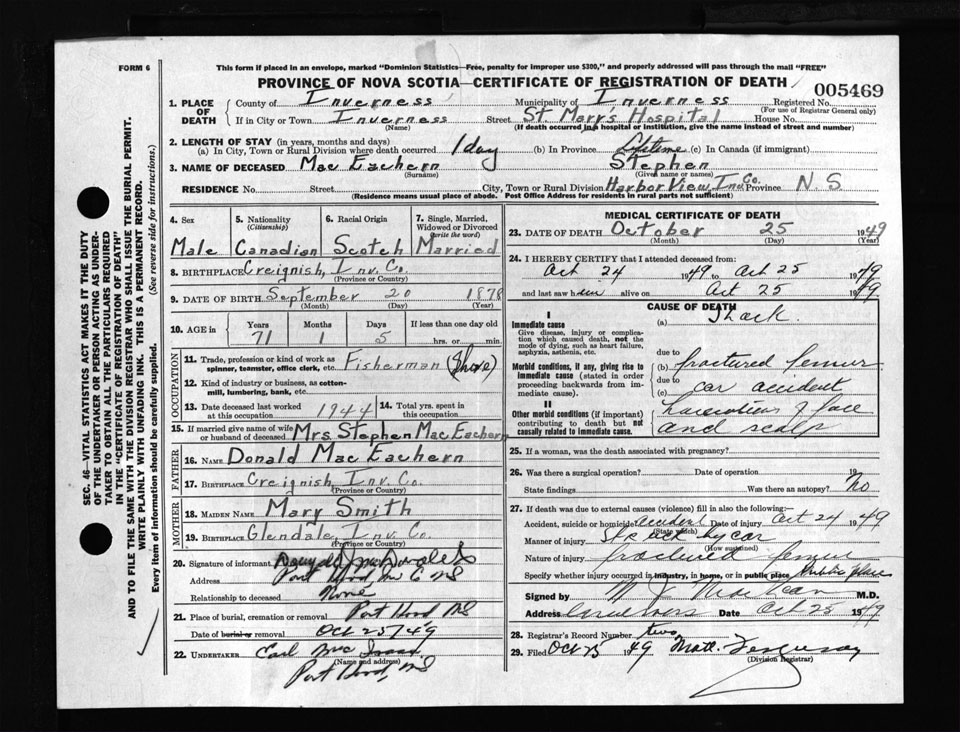 FORM 6
This form if placed in an envelope, marked "Dominion Statistics—Free, penalty for improper use $300," and properly addressed will pass through the mail "FREE"
PROVINCE OF NOVA SCOTIA—CERTIFICATE OF REGISTRATION OF DEATH
005469
1. PLACE OF DEATH County of Inverness Municipality of Inverness Registered No.
(For use of Registrar General only)
If in City or Town Inverness Street St. Mary's Hospital House No.
(Name) (If death occurred in a hospital or institution, give the name instead of street and number)
2. LENGTH OF STAY (in years, months and days)
(a) In City, Town or Rural Division where death occurred 1 day (b) In Province Lifetime (c) In Canada (if immigrant)
3. NAME OF DECEASED Mac Eachern Stephen
(Surname) (Given name or names)
RESIDENCE No. Street City, Town or Rural Division Harbor View, Inv. Co. Province N. S.
(Residence means usual place of abode. Post Office Address for residents in rural parts not sufficient)
SEC. 46—VITAL STATISTICS ACT MAKES IT THE DUTY
OF THE UNDERTAKER OR PERSON ACTING AS UNDER-
TAKER TO OBTAIN ALL THE PARTICULARS REQUIRED
IN THE "CERTIFICATE OF REGISTRATION OF DEATH"
AND TO FILE THE SAME WITH THE DIVISION REGISTRAR WHO SHALL ISSUE THE BURIAL PERMIT.
WRITE PLAINLY WITH UNFADING INK. THIS IS A PERMANENT RECORD.
Every item of information should be carefully supplied. (See reverse side for instructions.)
4. Sex 5. Nationality 6. Racial Origin 7. Single, Married,
(Citizenship) Widowed or Divorced
(write the word)
Male Canadian Scotch Married
8. BIRTHPLACE Creignish, Inv. Co.
(Province or Country)
9. DATE OF BIRTH September 20 1878
(Month) (Day) (Year)
10. AGE in Years Months Days If less than one day old
71 1 5 hrs. or min.
OCCUPATION
11. Trade, profession or kind of work as
spinner, teamster, office clerk, etc. Fisherman (Shore)
12. Kind of industry or business, as cotton-
mill, lumbering, bank, etc.
13. Date deceased last worked
at this occupation 1944 14. Total yrs. spent in
this occupation
15. If married give name of wife
or husband of deceased Mrs Stephen Mac Eachern
FATHER
16. NAME Donald Mac Eachern
17. BIRTHPLACE Creignish Inv. Co.
(Province or Country)
MOTHER
18. MAIDEN NAME Mary Smith
19. BIRTHPLACE Glendale, Inv. Co.
(Province or Country)
20. Signature of informant
Address Port Hood NS
Relationship to deceased None
21. Place of burial, cremation or removal Port Hood NS
Date of burial or removal Oct 25/49
22. UNDERTAKER Earl Mac Isaac
(Name and address)
Port Hood, NS
MEDICAL CERTIFICATE OF DEATH
23. DATE OF DEATH October 25 1949
(Month) (Day) (Year)
24. I HEREBY CERTIFY that I attended deceased from:
Oct 24 1949 to Oct 25 1949
and last saw him alive on Oct 25 1949
CAUSE OF DEATH
I
Immediate cause (a) Shock.
Give disease, injury or complica-
tion which caused death, not the
mode of dying, such as heart failure,
asphyxia, asthenia, etc.
due to
Morbid conditions, if any, giving rise to
immediate cause (stated in order
proceeding backwards from imme-
diate cause).
(b) fractured femur
due to
(c) car accident
II
Other morbid conditions (if important)
contributing to death but not
causally related to immediate cause.
Lacerations of face
and scalp
25. If a woman, was the death associated with pregnancy?
26. Was there a surgical operation? Date of operation 19
State findings Was there an autopsy? No
27. If death was due to external causes (violence) fill in also the following:
Accident, suicide or homicide accident Date of injury Oct 24 1949
(State which)
Manner of injury struck by car
(How sustained)
Nature of injury fractured femur
Specify whether injury occurred in industry, in home, or in public place Public place
Signed by M. J. MacLean M.D.
Address Inverness Date Oct 25 1949
28. Registrar's Record Number two
29. Filed Oct 25 1949 Matt. Ferguson
(Division Registrar)